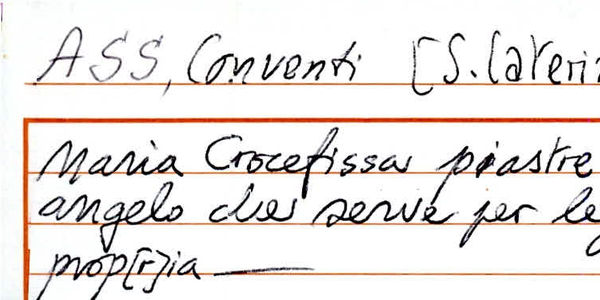 ASS, Conventi [S. Cateri
Maria Crocefissa piastre
angelo che serve per le
prop[r]ia